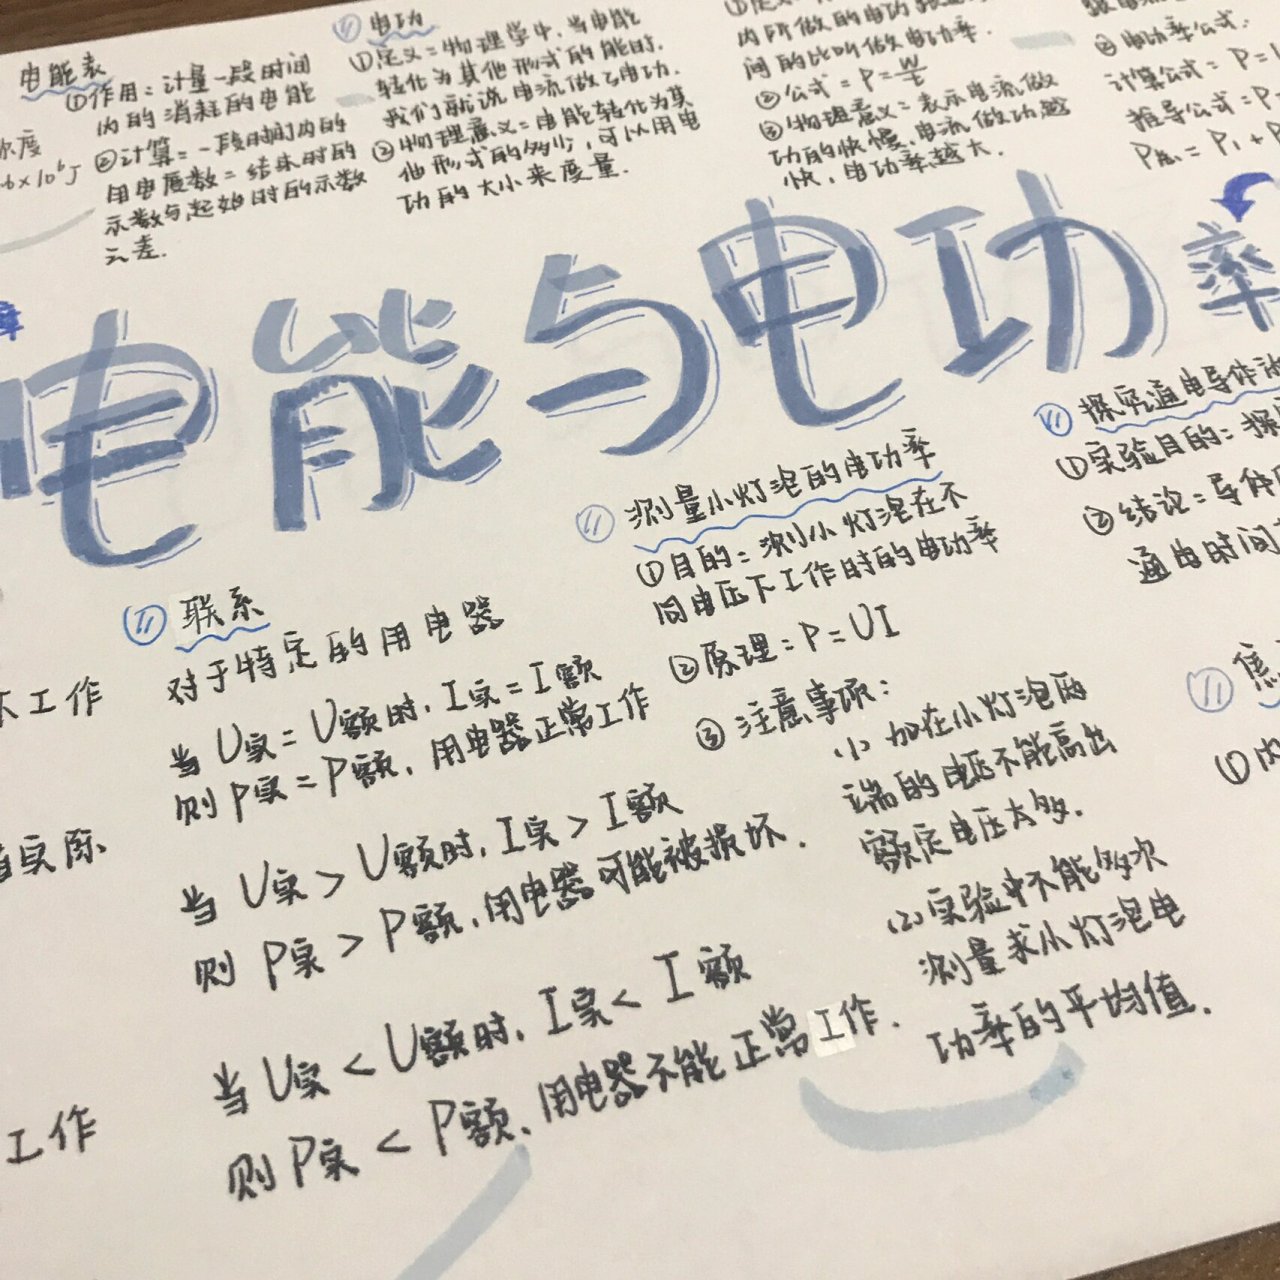 电能表
①作用：计量一段时间
内的消耗的电能
②计算：一段时间内的
用电度数＝结束时的
示数与起始时的示数
之差.
6×10⁶J
电功
①定义：物理学中，当电能
转化为其他形式的能时，
我们就说电流做了电功.
②物理意义：电能转化为其
他形式的多少，可以用电
功的大小来度量.
内所做的电功
间的比叫做电功率.
②公式：P=W/t
③物理意义：表示电流做
功的快慢，电流做功越
快，电功率越大.
②电功率公式：
计算公式：P=
推导公式：P=
P总=P₁+P
电能与电功率
联系
对于特定的用电器
当U实=U额时，I实=I额
则P实=P额，用电器正常工作
当U实>U额时，I实>I额
则P实>P额，用电器可能被损坏.
当U实<U额时，I实<I额
则P实<P额，用电器不能正常工作.
工作
实际
工作
测量小灯泡的电功率
①目的：测小小灯泡在不
同电压下工作时的电功率
②原理：P=UI
③注意事项：
(1)加在小灯泡两
端的电压不能高出
额定电压太多.
(2)实验中不能多次
测量求小灯泡电
功率的平均值.
探究通电导体
①实验目的：探
②结论：导体
通电时间
焦
①内